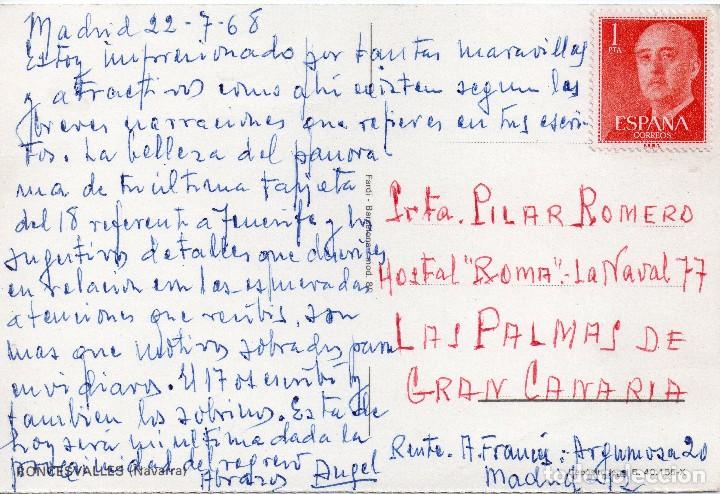 Madrid 22-7-68
Estoy impresionado por tantas maravillas
y atractivos como ahí existen segun las
breves narraciones que refieres en tus escri-
tos. La belleza del panora-
ma de tu ultima tarjeta
del 18 referente a Tenerife y los
sugestivos detalles que describes
en relacion con las esmeradas
atenciones que recibis, son
mas que motivos sobrados para
envidiaros. El 17 os escribí y
tambien los sobrinos. Esta de
hoy sera mi ultima dada la
proximidad del regreso
Abrazos Angel
RONCESVALLES (Navarra)
Fardi - Barcelona - mod.
1
PTA
ESPAÑA
CORREOS
Srta. PILAR ROMERO
Hostal "ROMA" - La Naval 77
LAS PALMAS DE
GRAN CANARIA
Rente. A. Francés: Argumosa 20
Madrid-12
todocoleccion